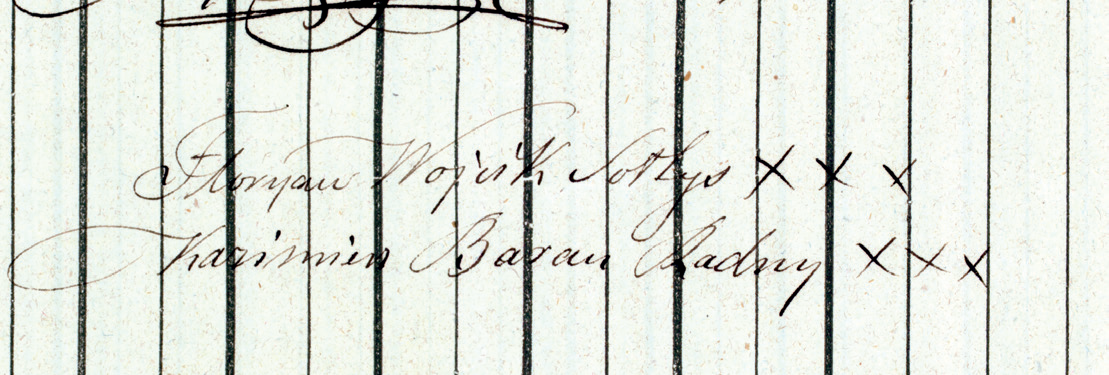 Floryan Wojcik Soltys X X X
Kazimierz Baran Radny X X X